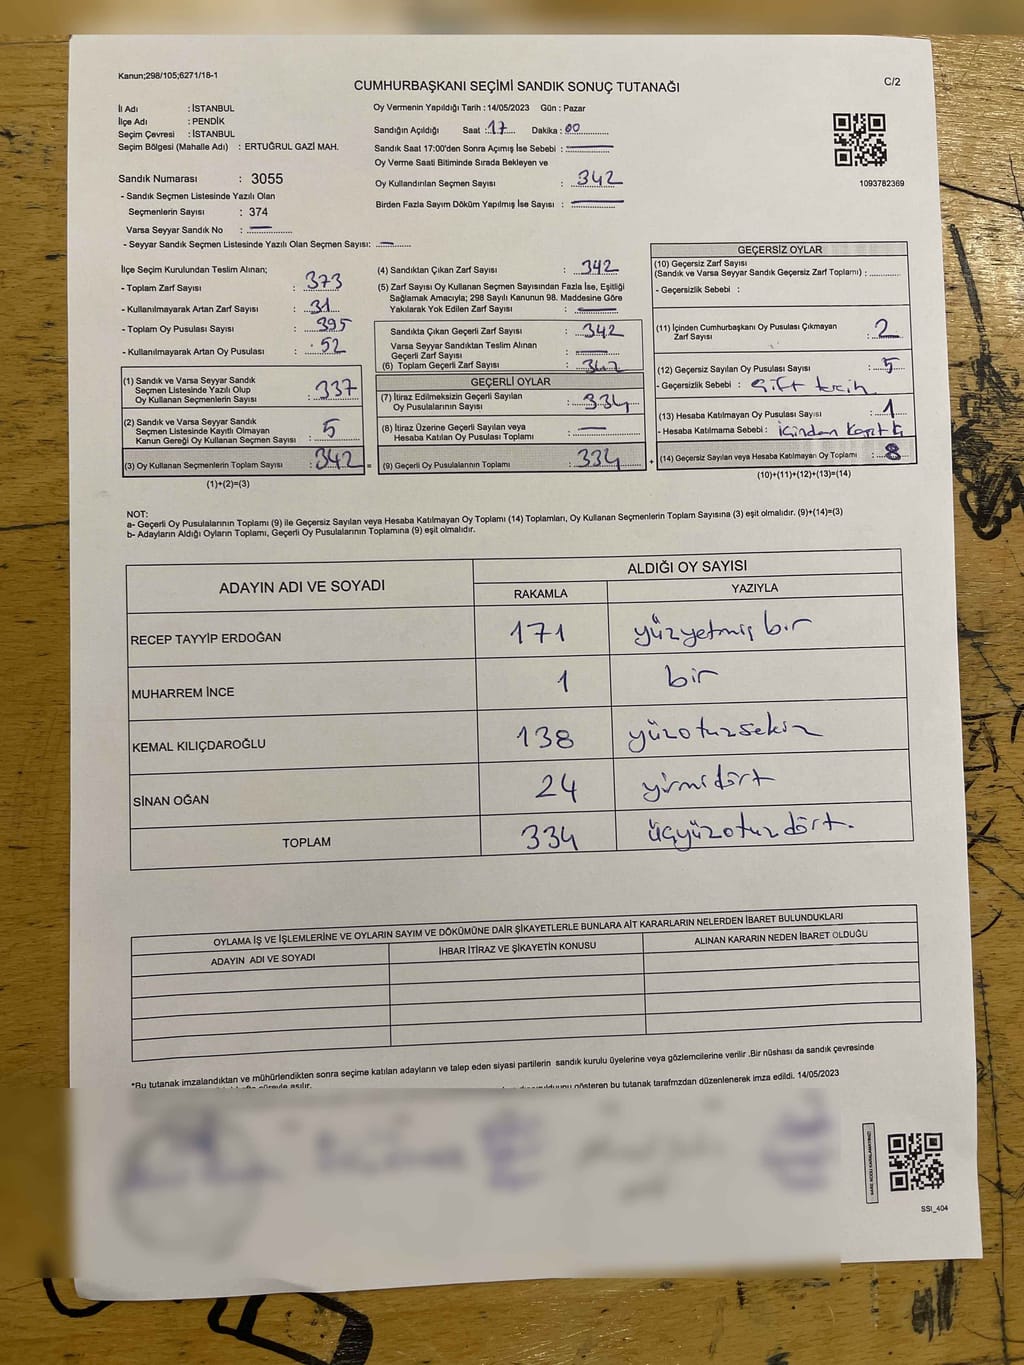 Kanun;298/105;6271/18-1
CUMHURBAŞKANI SEÇİMİ SANDIK SONUÇ TUTANAĞI
C/2
İl Adı : İSTANBUL
İlçe Adı : PENDİK
Seçim Çevresi : İSTANBUL
Seçim Bölgesi (Mahalle Adı) : ERTUĞRUL GAZİ MAH.
Sandık Numarası : 3055
- Sandık Seçmen Listesinde Yazılı Olan
Seçmenlerin Sayısı : 374
Varsa Seyyar Sandık No : —
- Seyyar Sandık Seçmen Listesinde Yazılı Olan Seçmen Sayısı: —
Oy Vermenin Yapıldığı Tarih : 14/05/2023 Gün : Pazar
Sandığın Açıldığı Saat : 17 Dakika : 00
Sandık Saat 17:00'den Sonra Açımış İse Sebebi : —
Oy Verme Saati Bitiminde Sırada Bekleyen ve
Oy Kullandırılan Seçmen Sayısı : 342
Birden Fazla Sayım Döküm Yapılmış İse Sayısı : —
1093782369
İlçe Seçim Kurulundan Teslim Alınan;
- Toplam Zarf Sayısı : 373
- Kullanılmayarak Artan Zarf Sayısı : 31
- Toplam Oy Pusulası Sayısı : 395
- Kullanılmayarak Artan Oy Pusulası : 52
(1) Sandık ve Varsa Seyyar Sandık
Seçmen Listesinde Yazılı Olup
Oy Kullanan Seçmenlerin Sayısı : 337
(2) Sandık ve Varsa Seyyar Sandık
Seçmen Listesinde Kayıtlı Olmayan
Kanun Gereği Oy Kullanan Seçmen Sayısı : 5
(3) Oy Kullanan Seçmenlerin Toplam Sayısı : 342 =
(1)+(2)=(3)
(4) Sandıktan Çıkan Zarf Sayısı : 342
(5) Zarf Sayısı Oy Kullanan Seçmen Sayısından Fazla İse, Eşitliği
Sağlamak Amacıyla; 298 Sayılı Kanunun 98. Maddesine Göre
Yakılarak Yok Edilen Zarf Sayısı : —
Sandıkta Çıkan Geçerli Zarf Sayısı : 342
Varsa Seyyar Sandıktan Teslim Alınan
Geçerli Zarf Sayısı : —
(6) Toplam Geçerli Zarf Sayısı : 342
GEÇERLİ OYLAR
(7) İtiraz Edilmeksizin Geçerli Sayılan
Oy Pusulalarının Sayısı : 334
(8) İtiraz Üzerine Geçerli Sayılan veya
Hesaba Katılan Oy Pusulası Toplamı : —
(9) Geçerli Oy Pusulalarının Toplamı : 334 +
GEÇERSİZ OYLAR
(10) Geçersiz Zarf Sayısı
(Sandık ve Varsa Seyyar Sandık Geçersiz Zarf Toplamı) :
- Geçersizlik Sebebi :
(11) İçinden Cumhurbaşkanı Oy Pusulası Çıkmayan
Zarf Sayısı : 2
(12) Geçersiz Sayılan Oy Pusulası Sayısı : 5
- Geçersizlik Sebebi : Çift tercih
(13) Hesaba Katılmayan Oy Pusulası Sayısı : 1
- Hesaba Katılmama Sebebi : içinden
(14) Geçersiz Sayılan veya Hesaba Katılmayan Oy Toplamı : 8
(10)+(11)+(12)+(13)=(14)
NOT:
a- Geçerli Oy Pusulalarının Toplamı (9) ile Geçersiz Sayılan veya Hesaba Katılmayan Oy Toplamı (14) Toplamları, Oy Kullanan Seçmenlerin Toplam Sayısına (3) eşit olmalıdır. (9)+(14)=(3)
b- Adayların Aldığı Oyların Toplamı, Geçerli Oy Pusulalarının Toplamına (9) eşit olmalıdır.
ADAYIN ADI VE SOYADI
ALDIĞI OY SAYISI
RAKAMLA YAZIYLA
RECEP TAYYİP ERDOĞAN 171 yüzyetmiş bir
MUHARREM İNCE 1 bir
KEMAL KILIÇDAROĞLU 138 yüzotuzsekiz
SİNAN OĞAN 24 yirmidört
TOPLAM 334 üçyüzotuzdört.
OYLAMA İŞ VE İŞLEMLERİNE VE OYLARIN SAYIM VE DÖKÜMÜNE DAİR ŞİKAYETLERLE BUNLARA AİT KARARLARIN NELERDEN İBARET BULUNDUKLARI
ADAYIN ADI VE SOYADI
İHBAR İTİRAZ VE ŞİKAYETİN KONUSU
ALINAN KARARIN NEDEN İBARET OLDUĞU
*Bu tutanak imzalandıktan ve mühürlendikten sonra seçime katılan adayların ve talep eden siyasi partilerin sandık kurulu üyelerine veya gözlemcilerine verilir .Bir nüshası da sandık çevresinde
süreyle asılır.
gösteren bu tutanak tarafımzdan düzenlenerek imza edildi. 14/05/2023
SSI_404